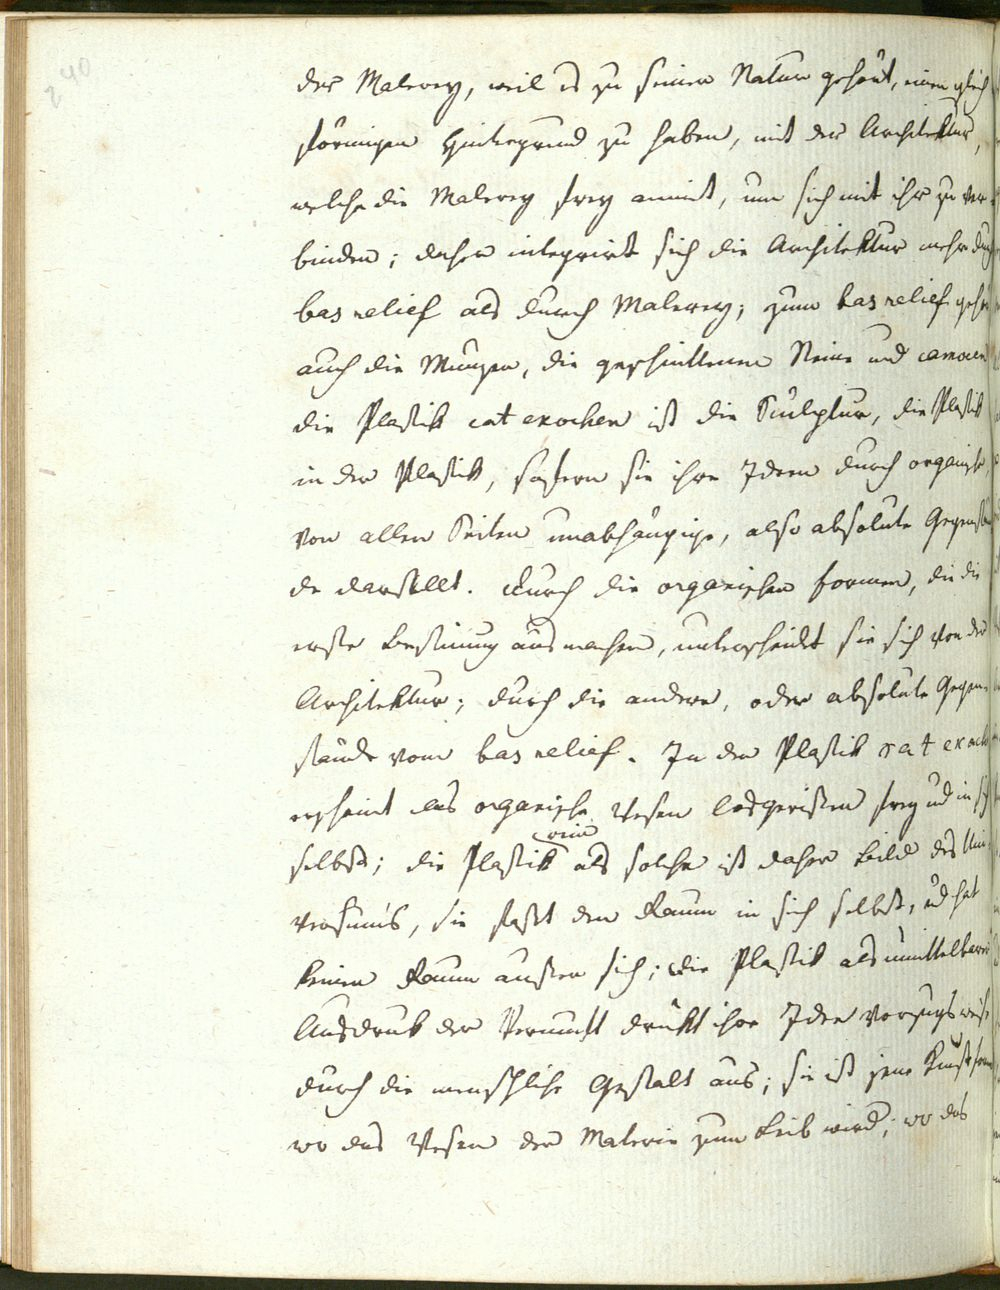 40
der Malerey, weil es zu seiner Natur gehört, einen gleich
förmigen Hintergrund zu haben, mit der Architektur,
welche die Malerey frey annimt, um sich mit ihr zu ver
binden; daher integrirt sich die Architektur mehr durch
bas relief als durch Malerey; zum bas relief gehör
auch die Münzen, die geschnittenen Steine und cameen
die Plastik cat exochen ist die Skulptur, die Plastik
in der Plastik, sofern sie ihre Ideen durch organische
von allen Seiten unabhängige, also absolute Gegenstän
de darstellt. Durch die organischen Formen, die die
erste Bestimung ausmachen, unterscheidet sie sich von der
Architektur; durch die andere, oder absolute Gegen-
stände vom bas relief. In der Plastik cat exoch
erscheint das organische Wesen losgerissen frey und in sich
selbst; die Plastik rein als solche ist daher Bild des Uni-
versums, sie faßt den Raum in sich selbst, und hat
keinen Raum ausser sich; die Plastik als unmittelbarer
Ausdruk der Vernunft drükt ihre Ideen vorzugsweise
durch die menschliche Gestalt aus; sie ist jene Kunstform
wo das Wesen der Materie zum Leib wird, wo das